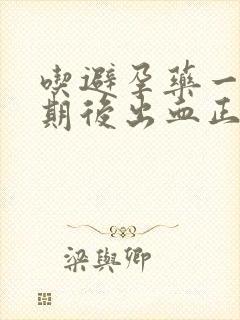 喫避孕藥一
期後出血正
梁與卿